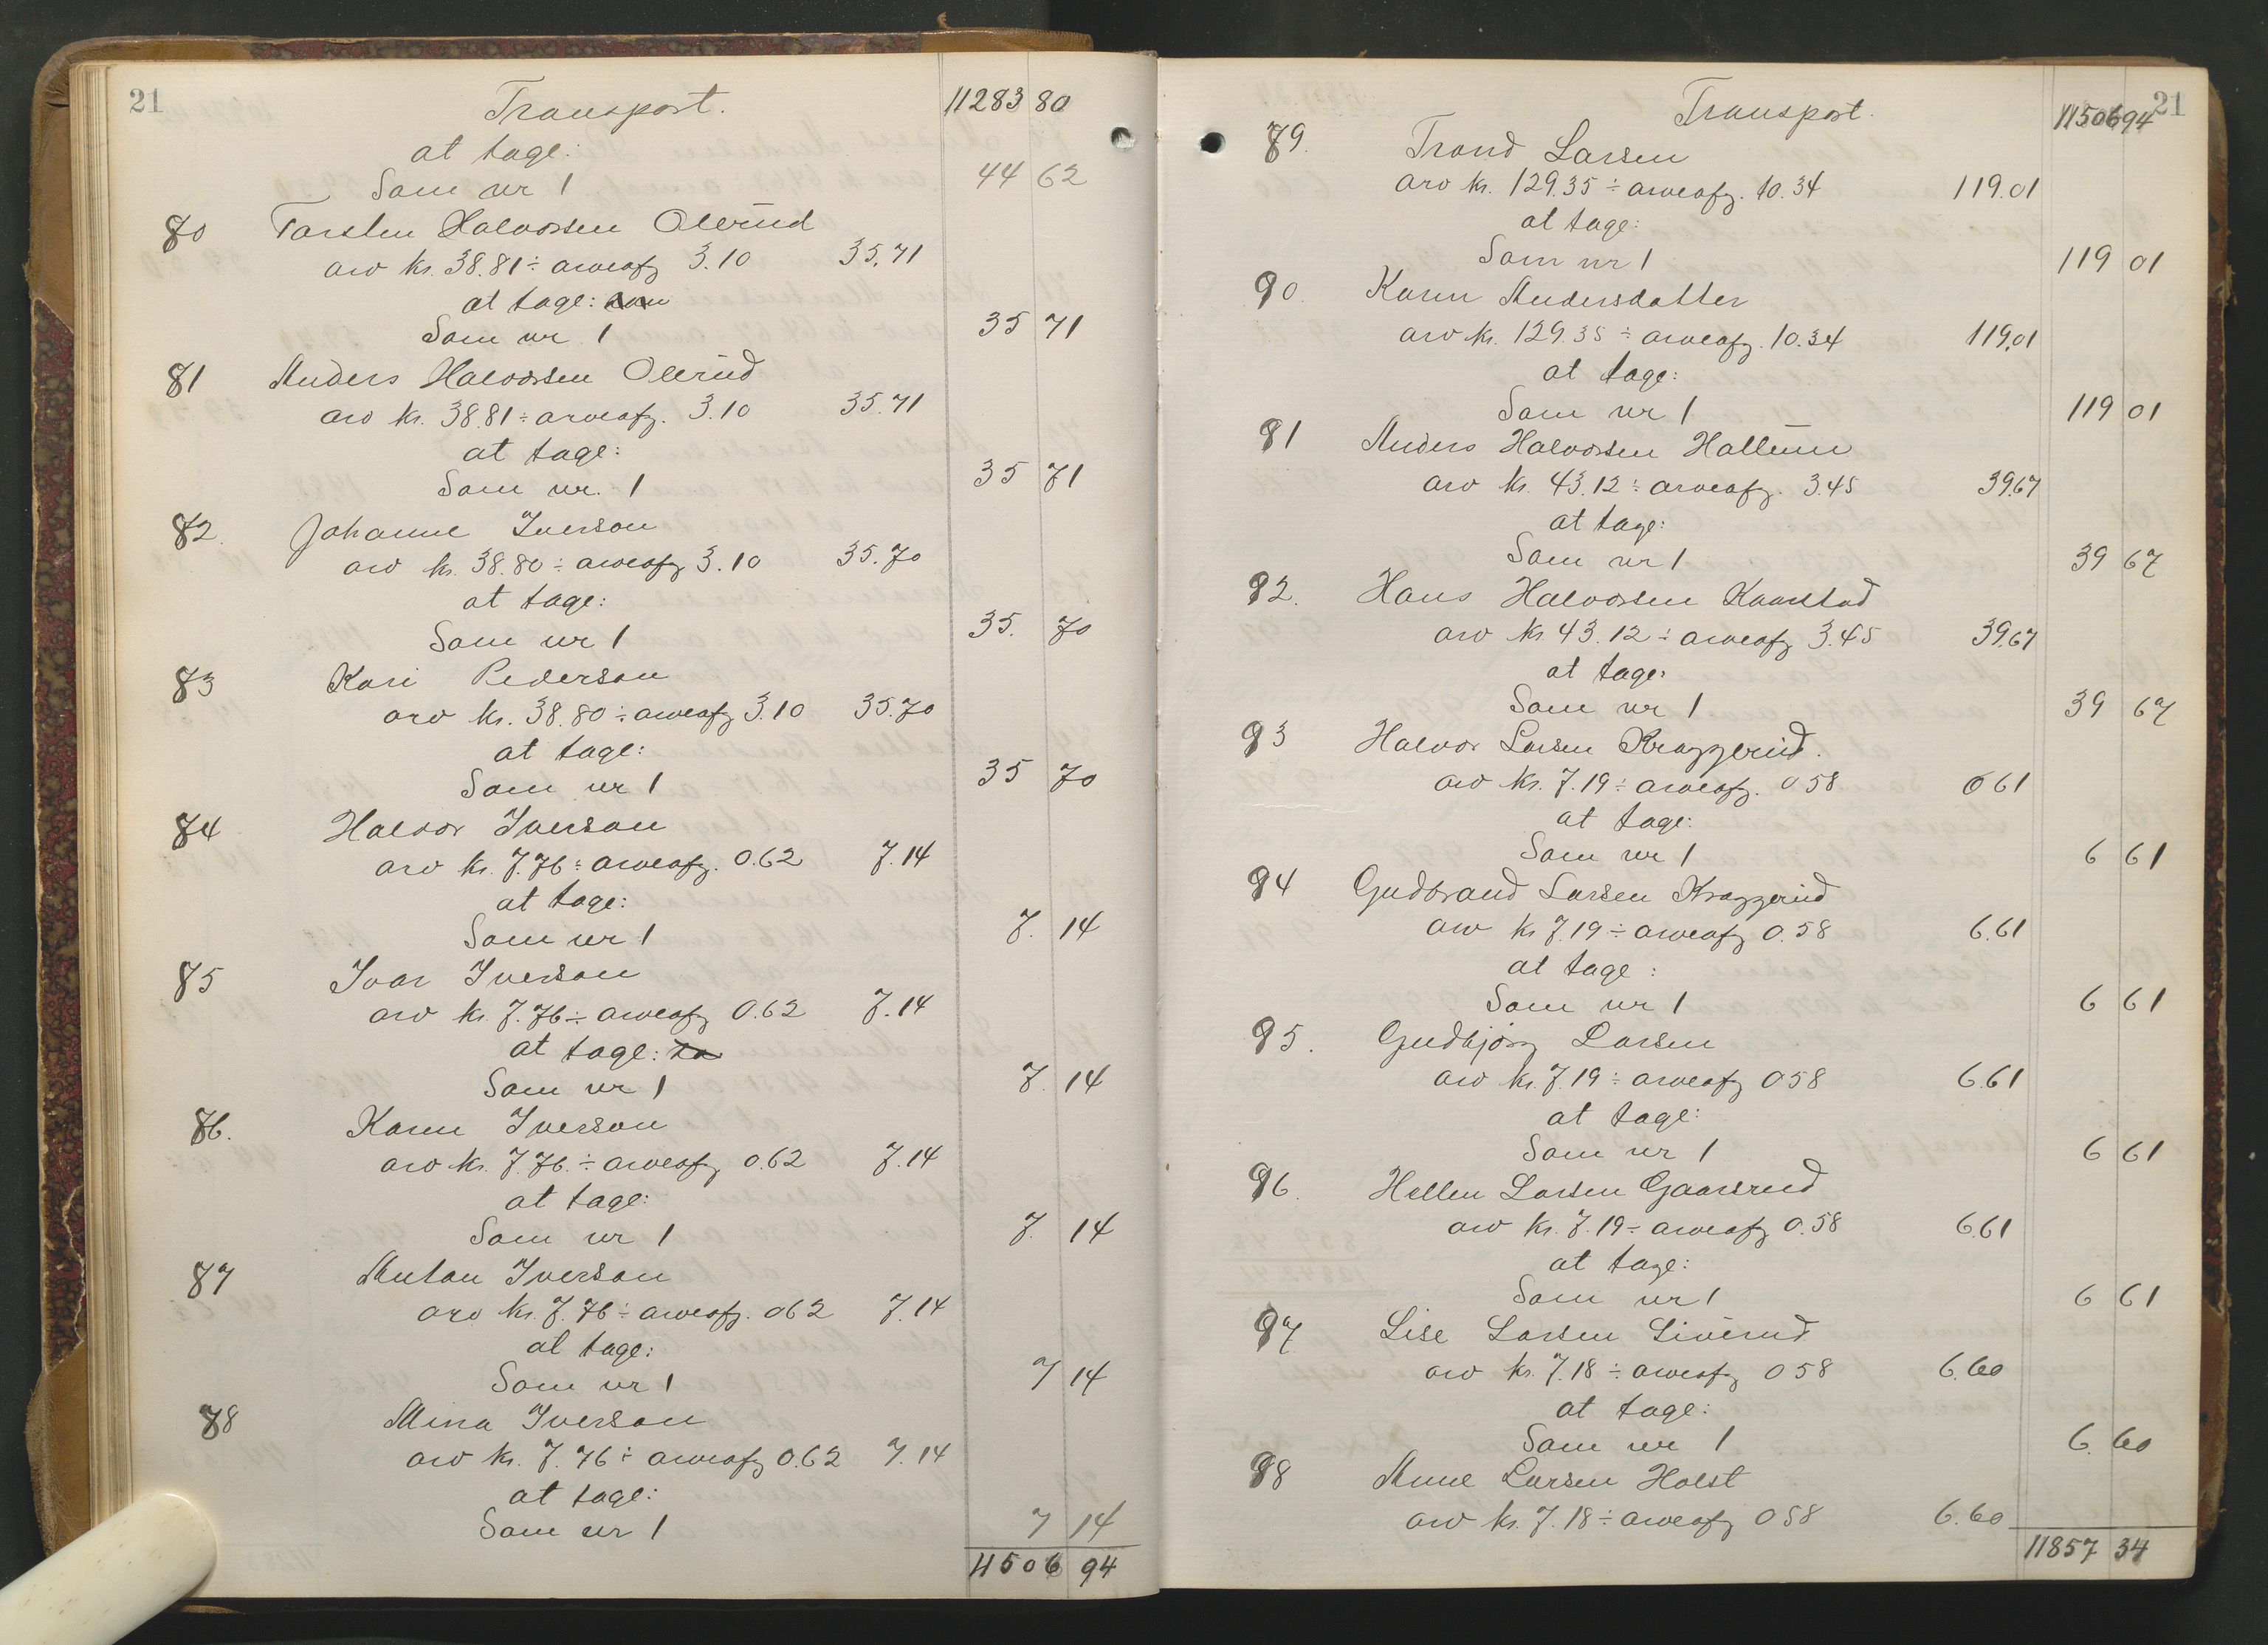 21
Transport. 11283 80
at tage:
Som nr 1 44 62
80 Torsten Halvorsen Olerud
arv kr. 38.81 ÷ arveafg 3.10 35.71
at tage: som
Som nr 1 35 71
81 Anders Halvorsen Olerud
arv kr. 38.81 ÷ arveafg. 3.10 35.71
at tage:
Som nr. 1 35 71
82. Johanne Iverson
arv kr. 38.80 ÷ arveafg 3.10 35.70
at tage:
Som nr 1 35. 70
83 Kari Pederson
arv kr. 38.80 ÷ arveafg 3.10 35.70
at tage:
Som nr 1 35 70
84 Halvor Iverson
arv kr. 7.76 ÷ arveafg. 0.62 7.14
at tage:
Som nr 1 7. 14
85 Ivar Iverson
arv kr. 7.76 ÷ arveafg 0.62 7.14
at tage:
Som nr 1 7. 14
86. Karen Iverson
arv kr. 7.76 ÷ arveafg 0.62 7.14
at tage:
Som nr 1 7. 14
87 Anton Iverson
arv kr. 7.76 ÷ arveafg. 062 7.14
at tage:
Som nr 1 7 14
88 Mina Iverson
arv kr. 7.76 ÷ arveafg 0.62 7.14
at tage:
Som nr 1 7 14
11506 94
21
Transport. 11506 94
89. Trond Larsen
arv kr. 129.35 ÷ arveafg. 10.34 119.01
at tage:
Som nr 1 119 01
90. Karen Andersdatter
arv kr. 129.35 ÷ arveafg. 10.34 119.01
at tage:
Som nr 1 119 01
91 Anders Halvorsen Hallum
arv kr. 43.12 ÷ arveafg. 3.45 39.67
at tage:
Som nr 1 39 67
92. Hans Halvorsen Kaarstad
arv kr. 43.12 ÷ arveafg 3.45 39.67
at tage:
Som nr 1 39 67
93 Halvor Larsen Kraggerud.
arv kr. 7.19 ÷ arveafg. 058 661
at tage:
Som nr 1 6 61
94 Gudbrand Larsen Kraggerud
arv kr 7.19 ÷ arveafg 0.58 6.61
at tage:
Som nr 1 6 61
95. Gudbjørg Larsen
arv kr. 7.19 ÷ arveafg 058 6.61
at tage:
Som nr 1 6 61
96. Hellen Larsen Gaarsrud
arv kr. 7.19 ÷ arveafg 0.58 6.61
at tage:
Som nr 1 6 61
97 Lise Larsen Liverud
arv kr. 7.18 ÷ arveafg 058 6.60
at tage:
Som nr 1 6. 60
98 Anne Larsen Holst
arv kr. 7.18 ÷ arveafg 058 6.60
11857 34